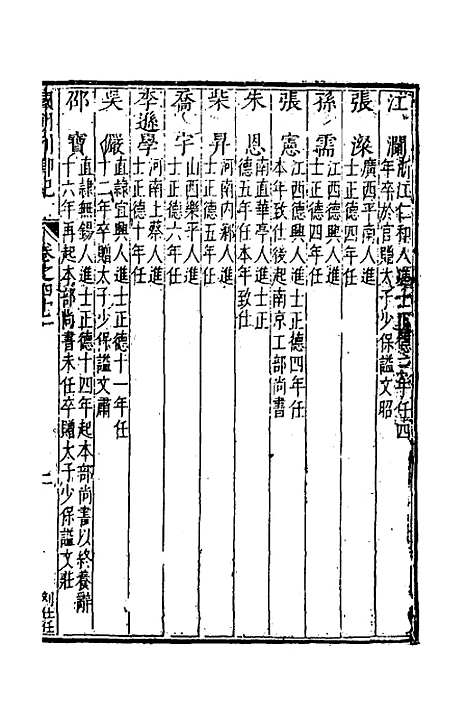 江瀾 浙江仁和人進士正德三年任四
年卒於官贈太子少保謚文昭
張濚 廣西平南人進
士正德四年任
孫需 江西德興人進
士正德四年任
張憲 江西德興人進士正德四年任
本年致仕後起南京工部尚書
朱恩 南直華亭人進士正
德五年任本年致仕
柴昇 河南内鄉人進
士正德五年任
喬宇 山西樂平人進
士正德六年任
李遜學 河南上蔡人進
士正德十年任
吳儼 直隸宜興人進士正德十一年任
十二年卒贈太子少保謚文肅
邵寶 直隸無錫人進士正德十四年起本部尚書以終養辭
十六年再起本部尚書未任卒贈太子少保謚文莊
國朝列卿紀 卷之四十二 二 刘仕任